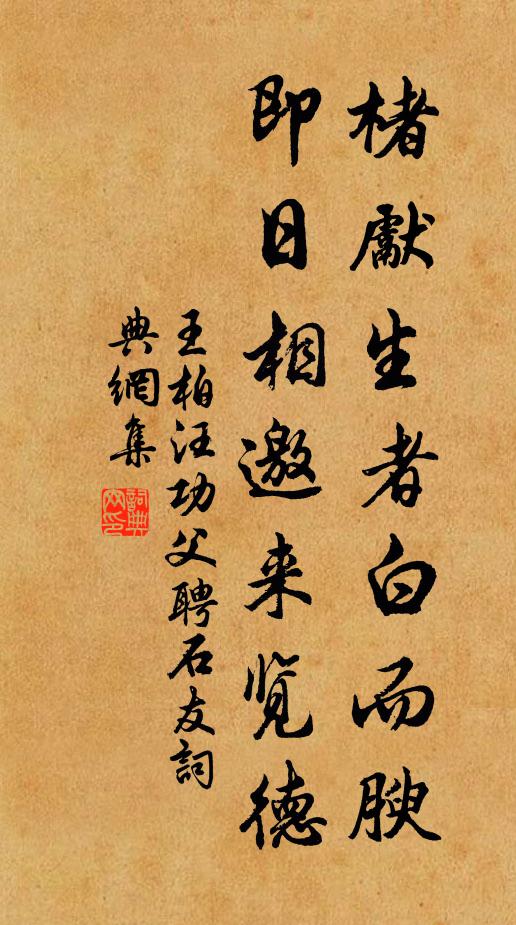 楮獻生者白而腴
即日相邀来览德
王柏汪功父聘石友詞
典網集
詞典
网印